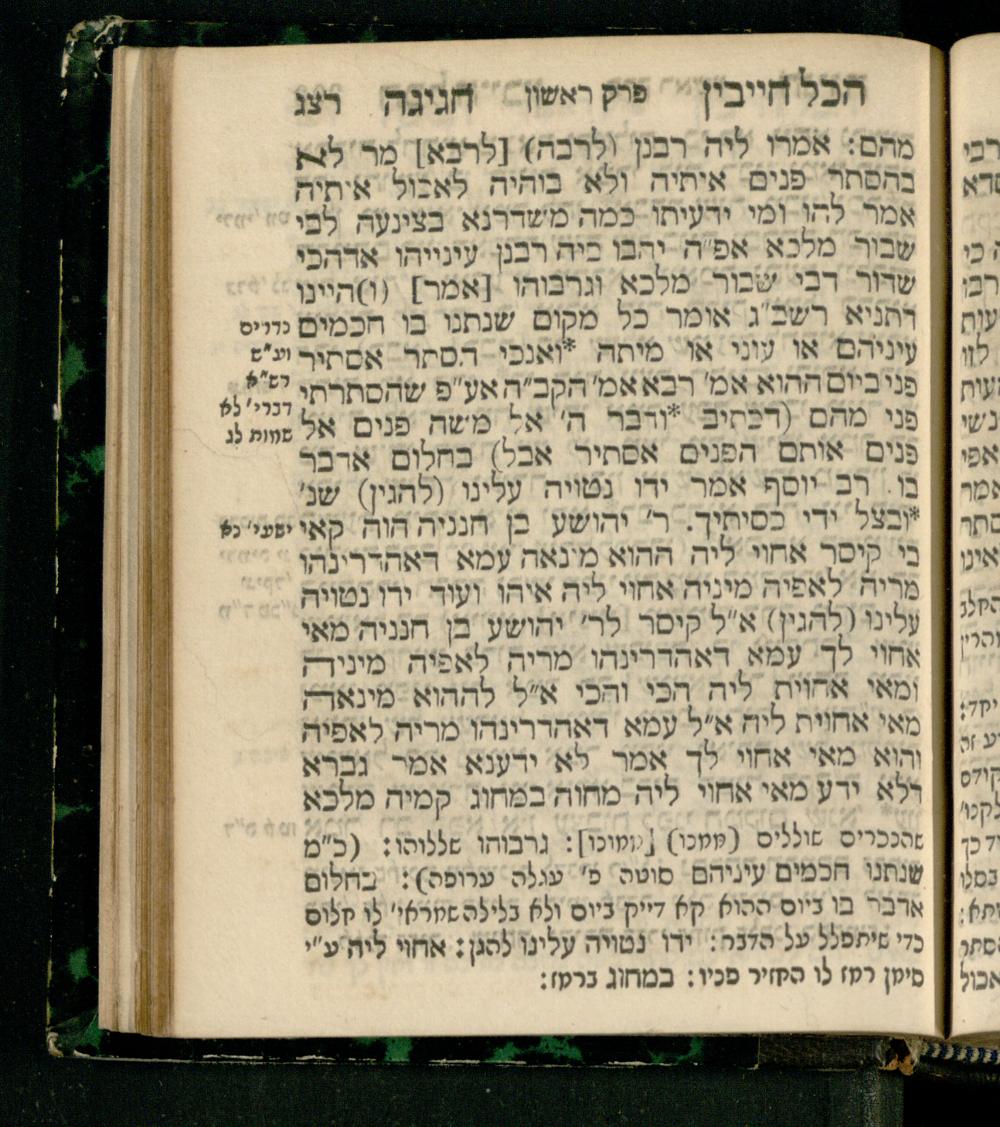 הכל חייבין פרק ראשון חגיגה רצג
מהם: אמרו ליה רבנן (לרבה) [לרבא] מר לא
בהסתר פנים איתיה ולא בוהיה לאכול איתיה
אמר להו ומי ידעיתו כמה משדרנא בצינעה לבי
שבור מלכא אפ״ה יהבו ביה רבנן עינייהו אדהכי
שדור דבי שבור מלכא וגרבוהו [אמר] (ו)היינו
דתניא רשב״ג אומר כל מקום שנתנו בו חכמים
עיניהם או עוני או מיתה *ואנכי הסתר אסתיר
פני ביום ההוא אמ׳ רבא אמ׳ הקב״ה אע״פ שהסתרתי
פני מהם (דכתיב *ודבר ה׳ אל משה פנים אל
פנים אותם הפנים אסתיר אבל) בחלום אדבר
בו. רב יוסף אמר ידו נטויה עלינו (להגין) שנ׳
*ובצל ידי כסיתיך. ר׳ יהושע בן חנניה הוה קאי
בי קיסר אחוי ליה ההוא מינאה עמא דאהדרינהו
מריה לאפיה מיניה אחוי ליה איהו ועוד ידו נטויה
עלינו (להגין) א״ל קיסר לר׳ יהושע בן חנניה מאי
אחוי לך עמא דאהדרינהו מריה לאפיה מיניה
ומאי אחוית ליה הכי והכי א״ל לההוא מינאה
מאי אחוית ליה א״ל עמא דאהדרינהו מריה לאפיה
והוא מאי אחוי לך אמר לא ידענא אמר גברא
דלא ידע מאי אחוי ליה מחוה במחוג קמיה מלכא
שהנכרים שוללים (ממכו) [עמוכו]: גרבוהו שללוהו: (כ״מ
שנתנו חכמים עיניהם סוטה פ׳ עגלה ערופה): בחלום
אדבר בו ביום ההוא קא דייק ביום ולא בלילה שמראי׳ לו חלום
כדי שיתפלל על הדבר: ידו נטויה עלינו להגן: אחוי ליה ע״י
סימן רמז לו החזיר פניו: במחוג ברמז:
נדרים
וע״ש
רש״א
דברי׳ לא
שמות לג
ישעי׳ נא